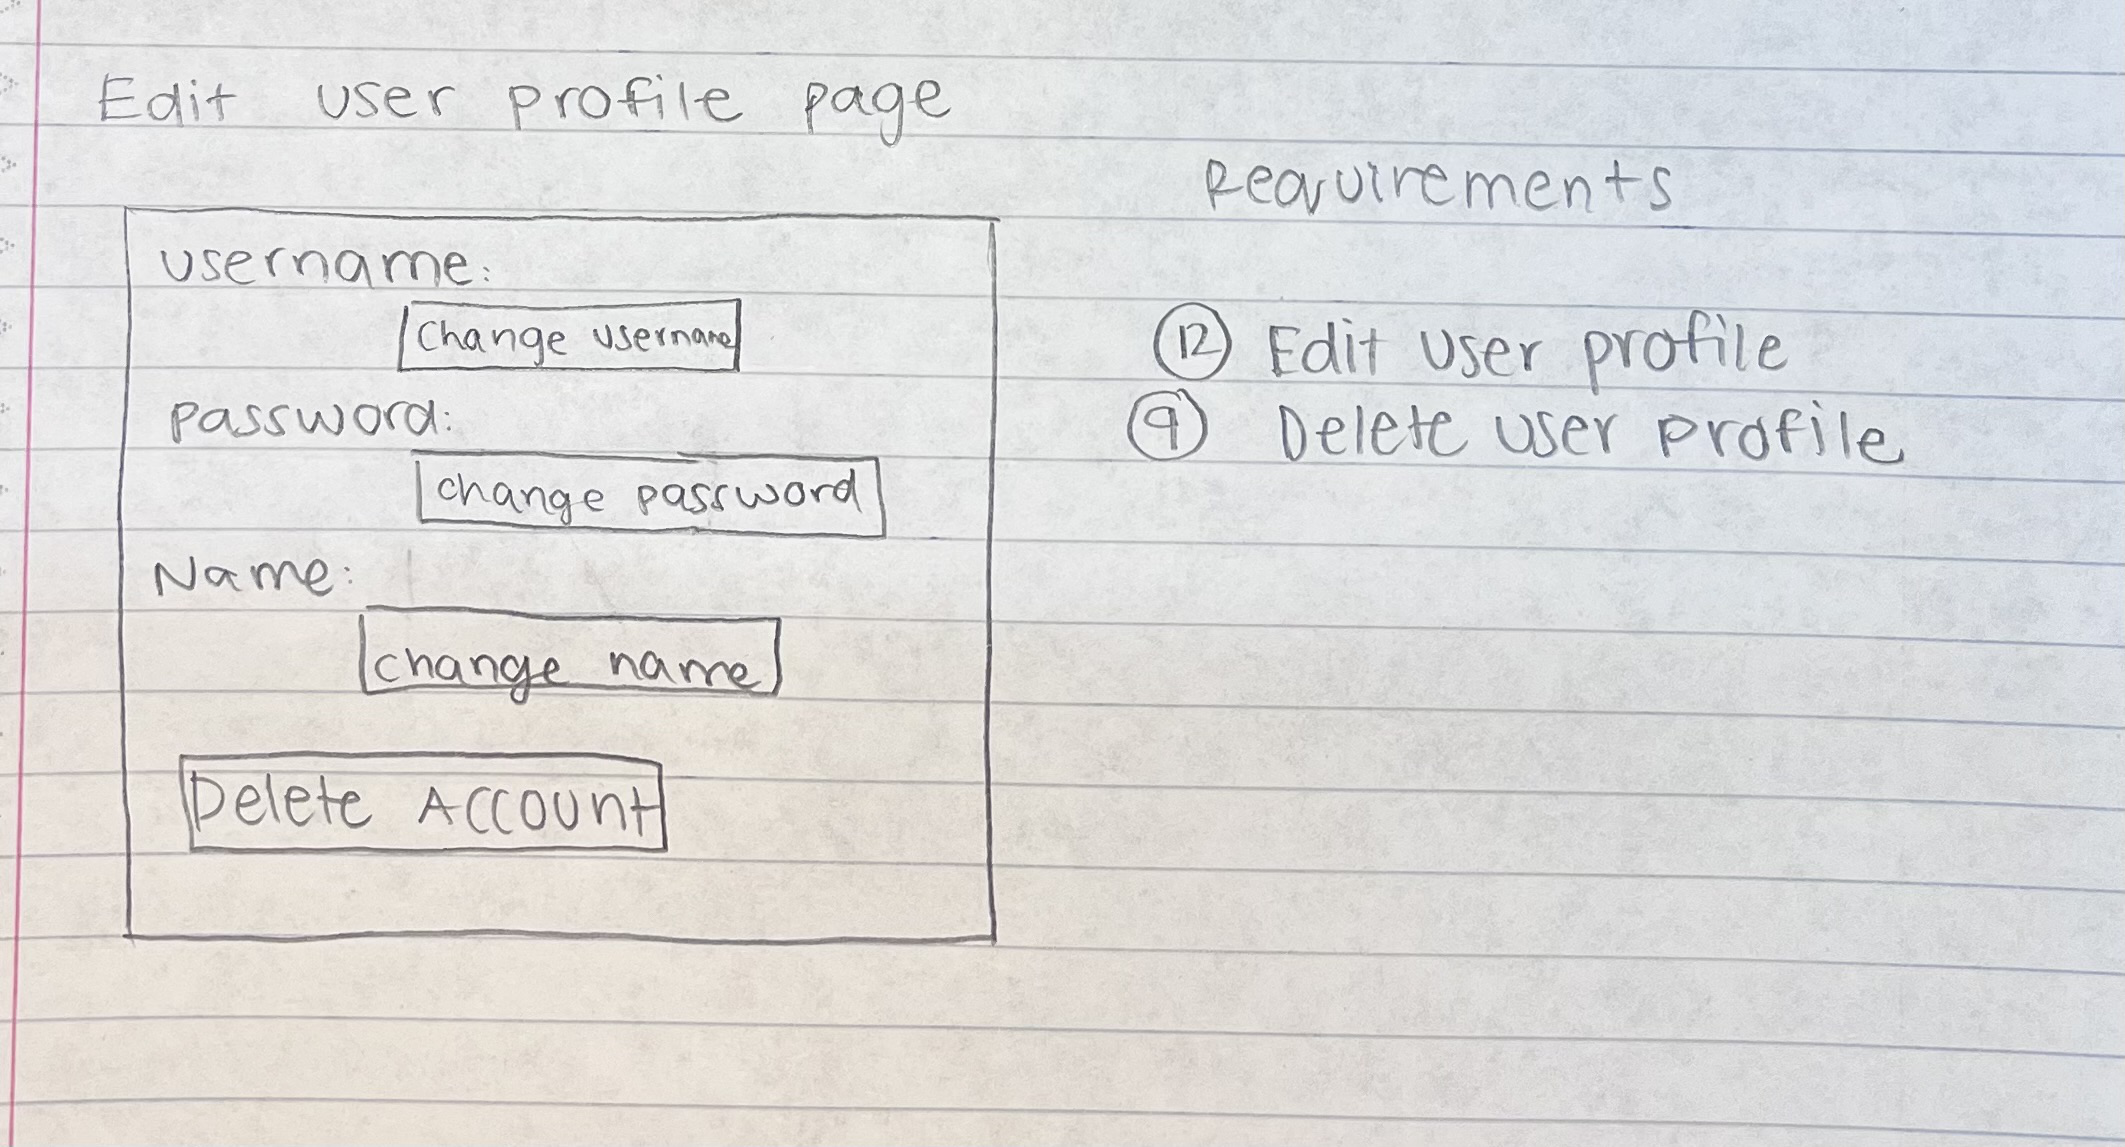 Edit user profile page
Requirements
username:
Change username
password:
change password
Name:
change name
Delete Account
12 Edit user profile
9 Delete user profile